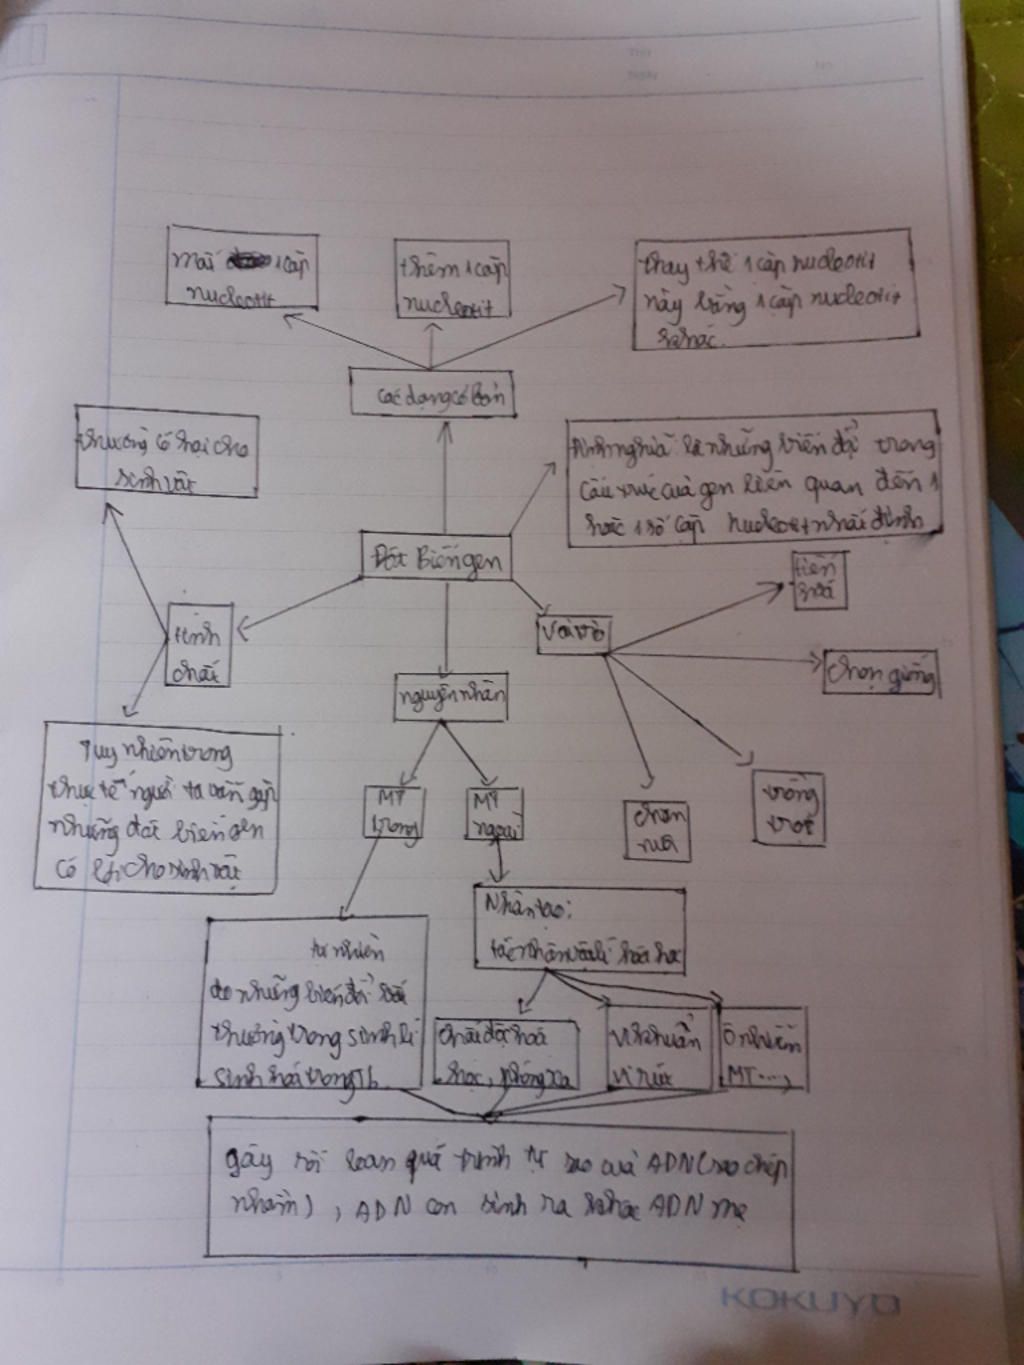 Thứ
Ngày
No
mất 1 cặp
nucleotit
thêm 1 cặp
nucleotit
thay thế 1 cặp nucleotit
này bằng 1 cặp nucleotit
khác.
các dạng cơ bản
thường có hại cho
sinh vật
Định nghĩa là những biến đổi trong
cấu trúc của gen liên quan đến 1
hoặc 1 số cặp nucleotit nhất định
Đột Biến gen
tiến
hoá
tính
chất
Vai trò
chọn giống
nguyên nhân
Tuy nhiên trong
thực tế người ta vẫn gặp
những đột biến gen
có lợi cho sinh vật
MT
trong
MT
ngoài
chăn
nuôi
trồng
trọt
Nhân tạo:
tác nhân vật lí hóa học
tự nhiên
do những biến đổi bất
thường trong sinh lí
sinh hoá trong Tb
chất độc hoá
học, phóng xạ
Vi khuẩn
Vi rút
ô nhiễm
MT....,
gây rối loạn quá trình tự sao của ADN (sao chép
nhầm), ADN con sinh ra khác ADN mẹ
KOKUYO